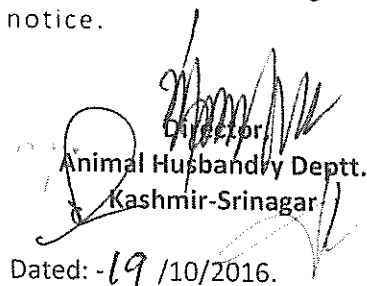 notice.
Director,
Animal Husbandry Deptt.
Kashmir-Srinagar
Dated: -19 /10/2016.